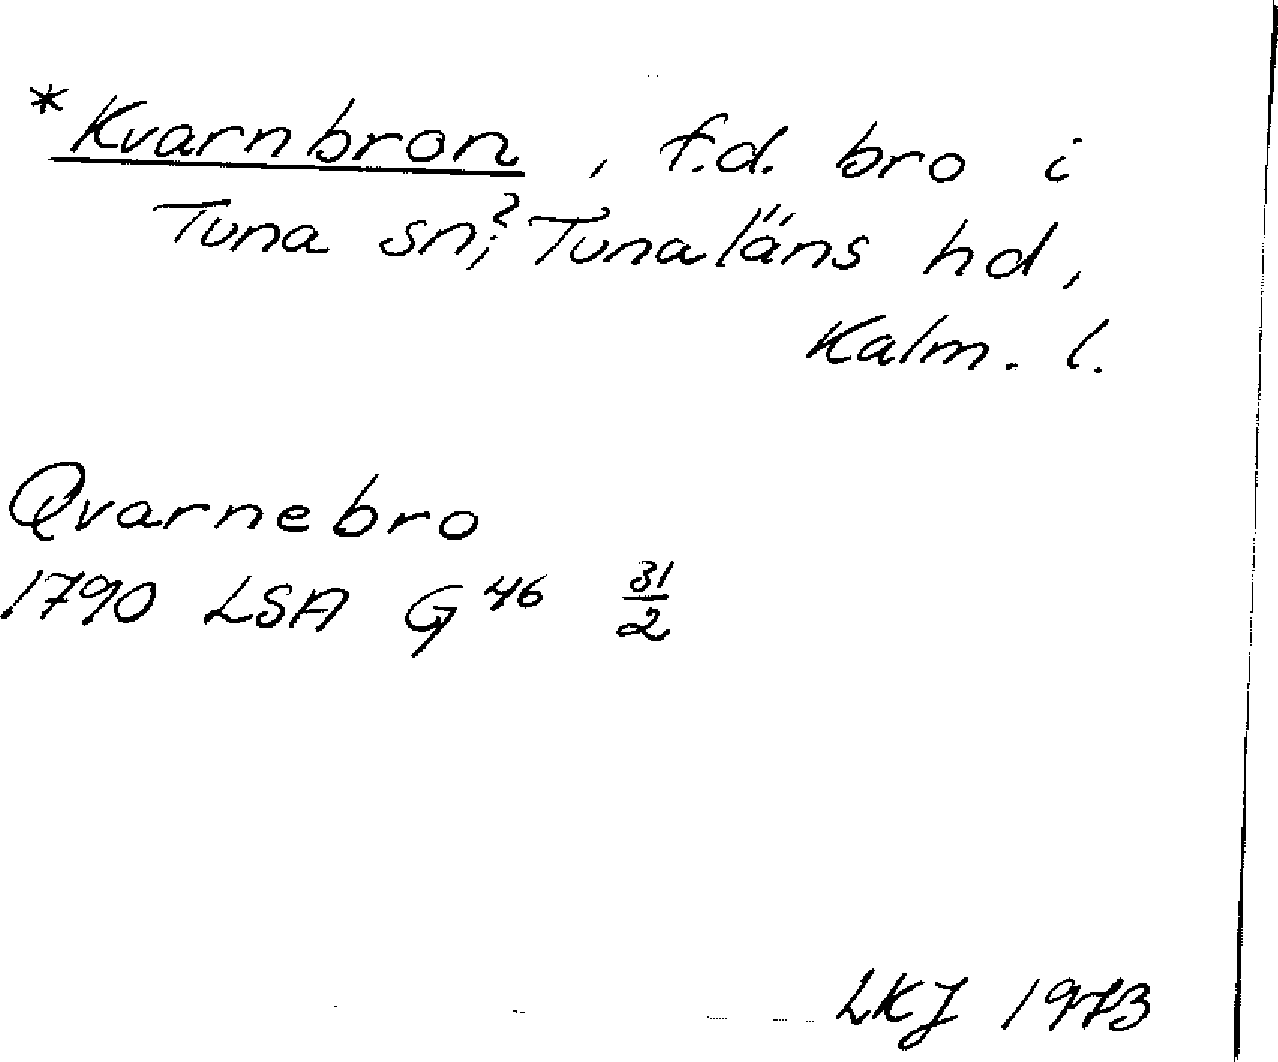 *Kvarnbron, f.d. bro i
Tuna sn?, Tunaläns hd,
Kalm. l.
Qvarnebro
1790 LSA G 46 31/2
LKJ 1973